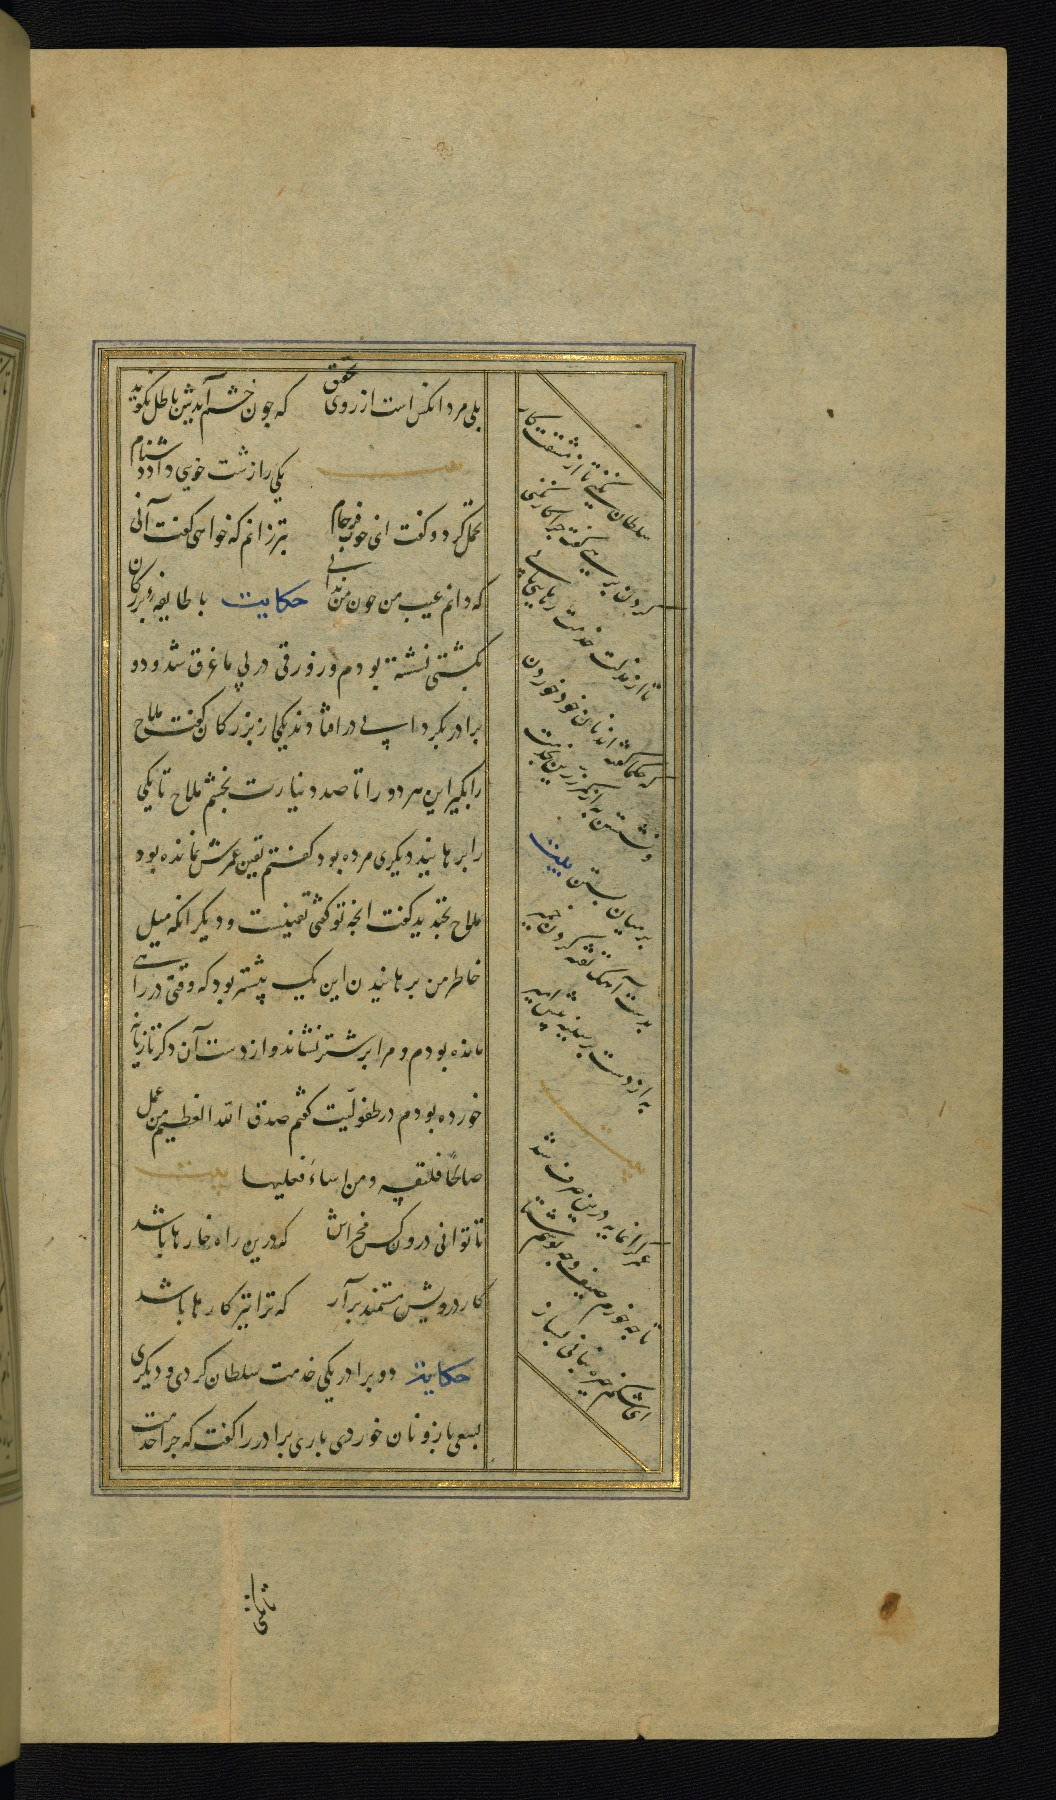 بلی مرد انکس است از روی تحقیق که چون خشم آیدش باطل نکوید
یکی را زشت خویی داد دشنام
تحمل کرد و کفت ای خوب فرجام بتر زانم که خواهی کفت آنی
که دانم عیب من چون من ندانی حکایت با طایفهٔ بزرکان
بکشتی نشسته بودم و زورقی در پی ما غرق شد و دو
برادر بکردابی در افتادند یکی از بزرکان کفت ملاح
را بکیر این هر دو را تا صد دینارت بخشم ملاح تا یکی
را برهانید دیکری مرده بود کفتم یقین عمرش نمانده بود
ملاح بخندید کفت انچه تو کفتی یقینست و دیکر انکه میل
خاطر من برهانیدن این یک پیشتر بود که وقتی در راهی
مانده بودم و مرا بر شتر نشاند و از دست آن دکر تازیانه
خورده بودم در طفولیّت کفتم صدق الله العظیم من عمل
صالحًا فلنفسه و من اساءَ فعلیها بیت
تا توانی درون کس مخراش که درین راه خارها باشد
کار درویش مستمند برآر که ترا نیز کارها باشد
حکایت دو برادر یکی خدمت سلطان کردی و دیکری
بسعی بازو نان خوردی باری برادر را کفت که چرا خدمت
سلطان نکنی تا از مشقت کار
کردن برهی کفت چرا کار نکنی
تا از مذلت خدمت رهایی یابی
که حکما کفته اند نان خود خوردن
و نشستن به از کمر زرین بخدمت
بر میان بستن بیت
بدست آهک تفته کردن خمیر
به از دست بر سینه پیش امیر
بیت
عمر کرانمایه درین صرف شد
تا چه خورم صیف و چه پوشم شتا
ای شکم خیره بنانی بساز
تا نکنی